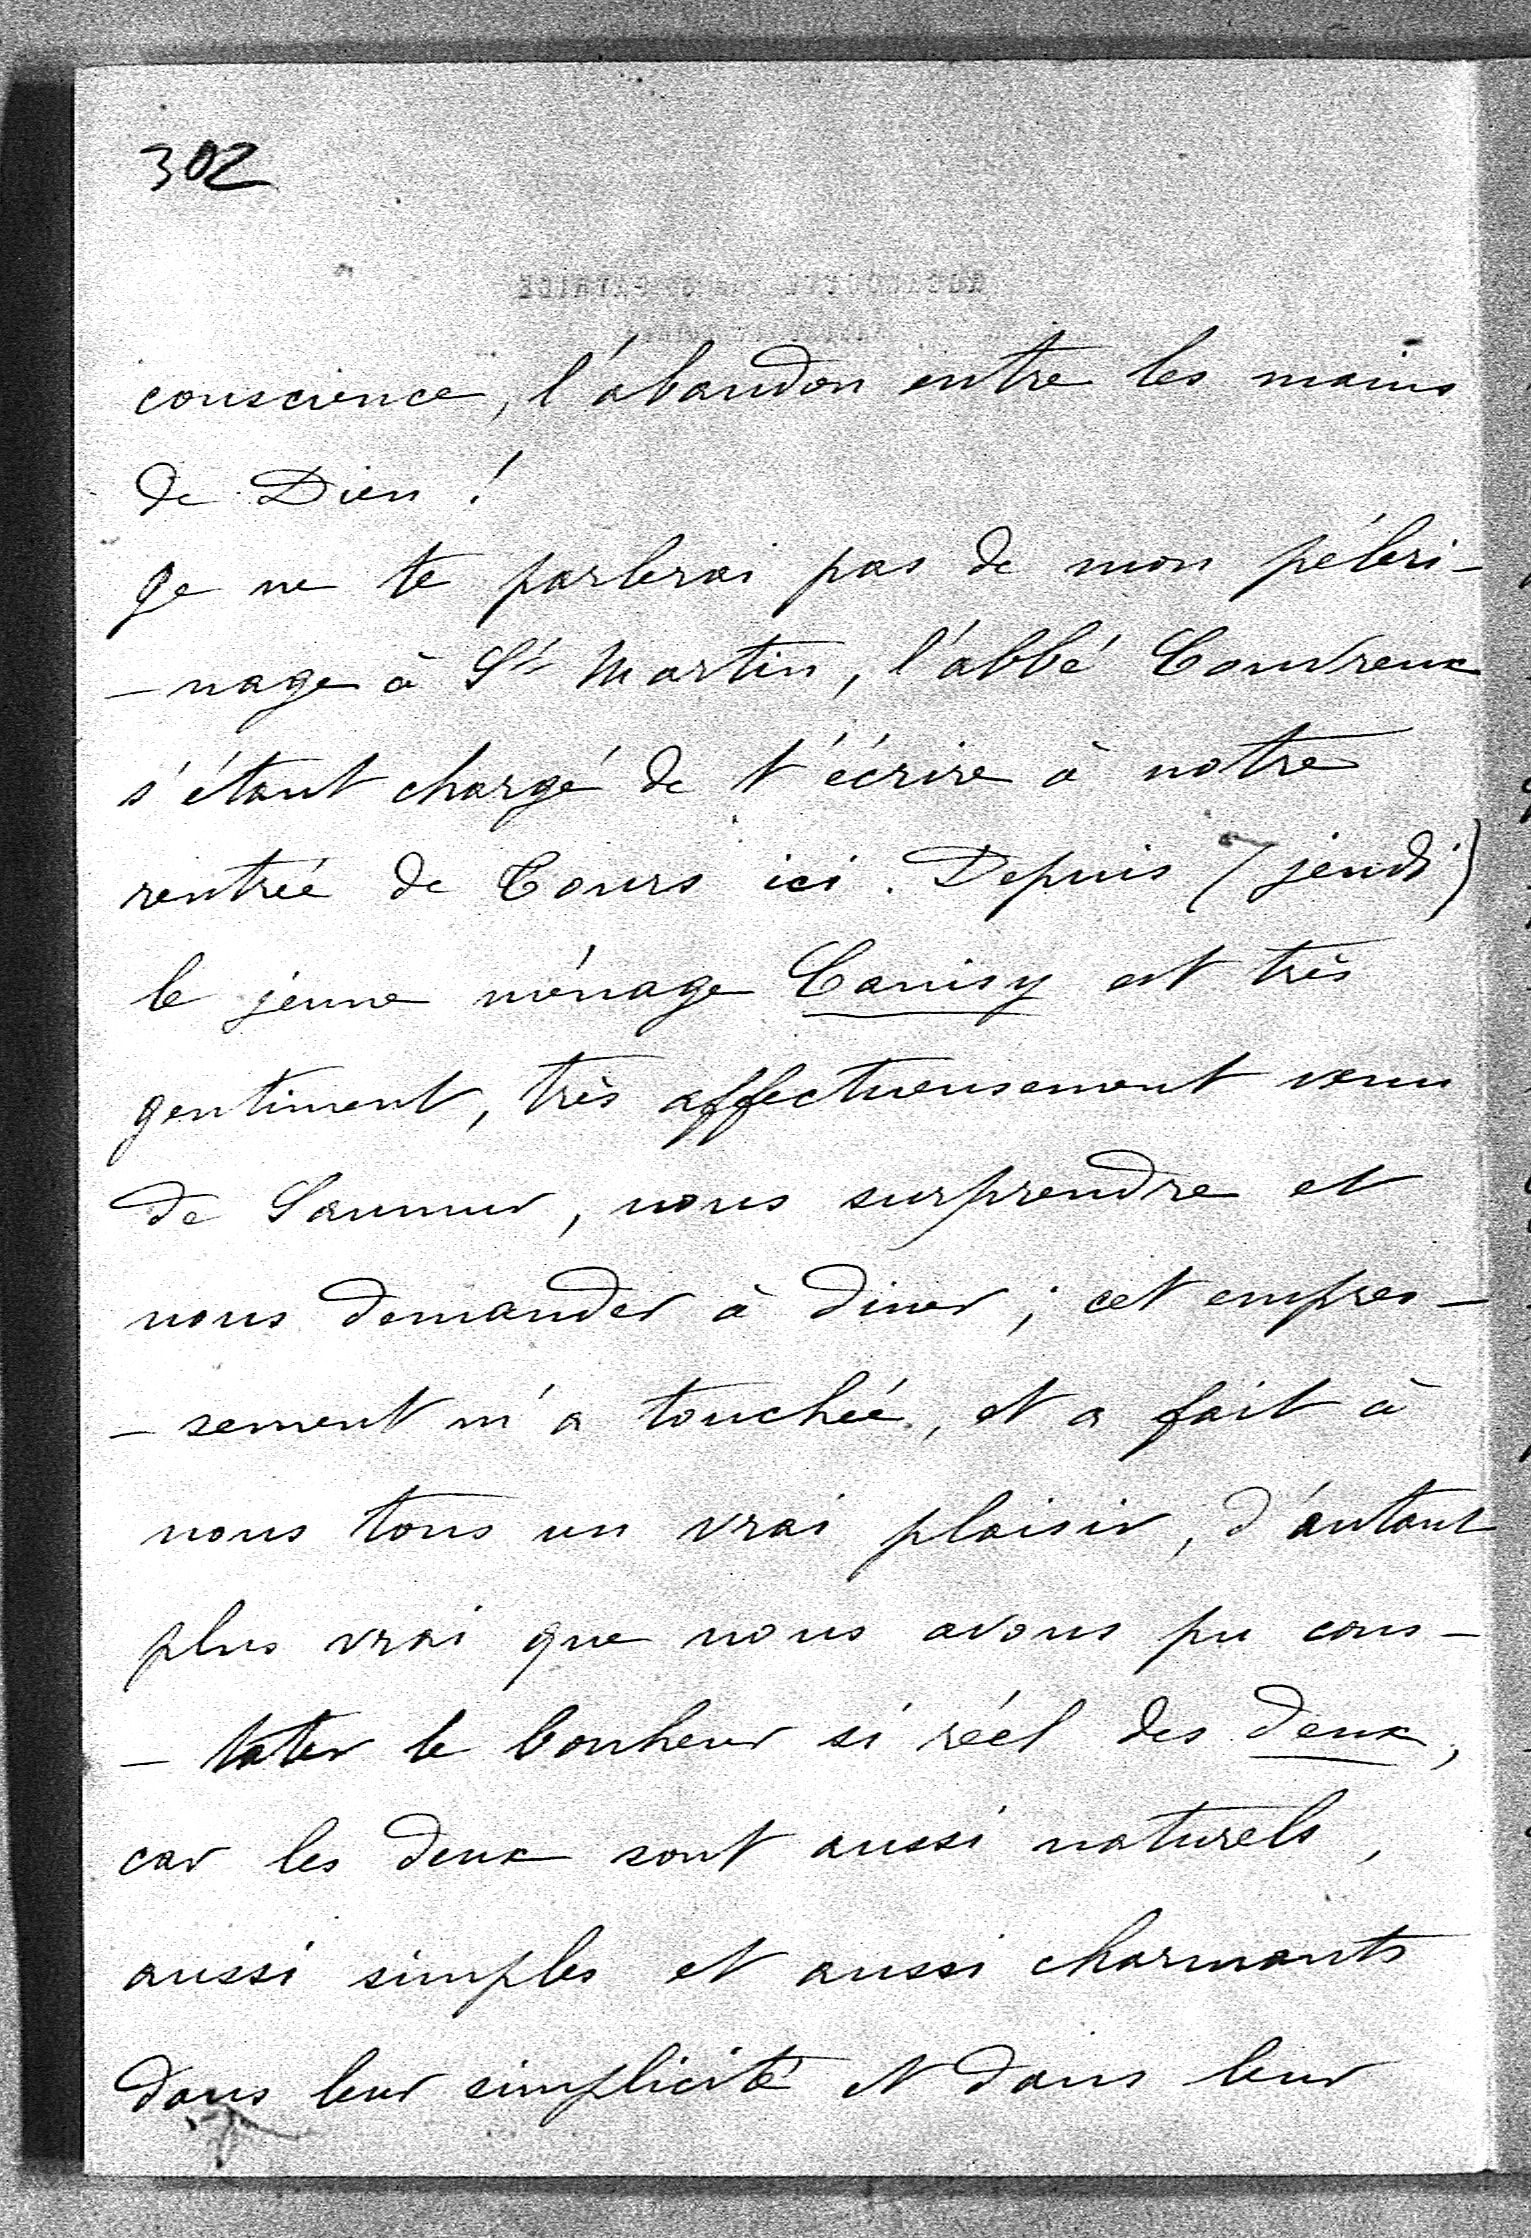 302
conscience, l'abandon entre les mains
de Dieu !
Je ne te parlerai pas de mon péleri-
-nage à St Martin, l'abbé Couvreux
s'étant chargé de t'écrire à notre
rentrée de Tours ici. Depuis (jeudi)
le jeune ménage Canisy est très
gentiment, très affectueusement venu
de Saumur, nous surprendre et
nous demander à diner ; cet empres-
-sement m'a touchée, et a fait à
nous tous un vrai plaisir, d'autant
plus vrai que nous avons pu cons-
-tater le bonheur si réel des deux,
car les deux sont aussi naturels,
aussi simples et aussi charmants
dans leur simplicité et dans leur